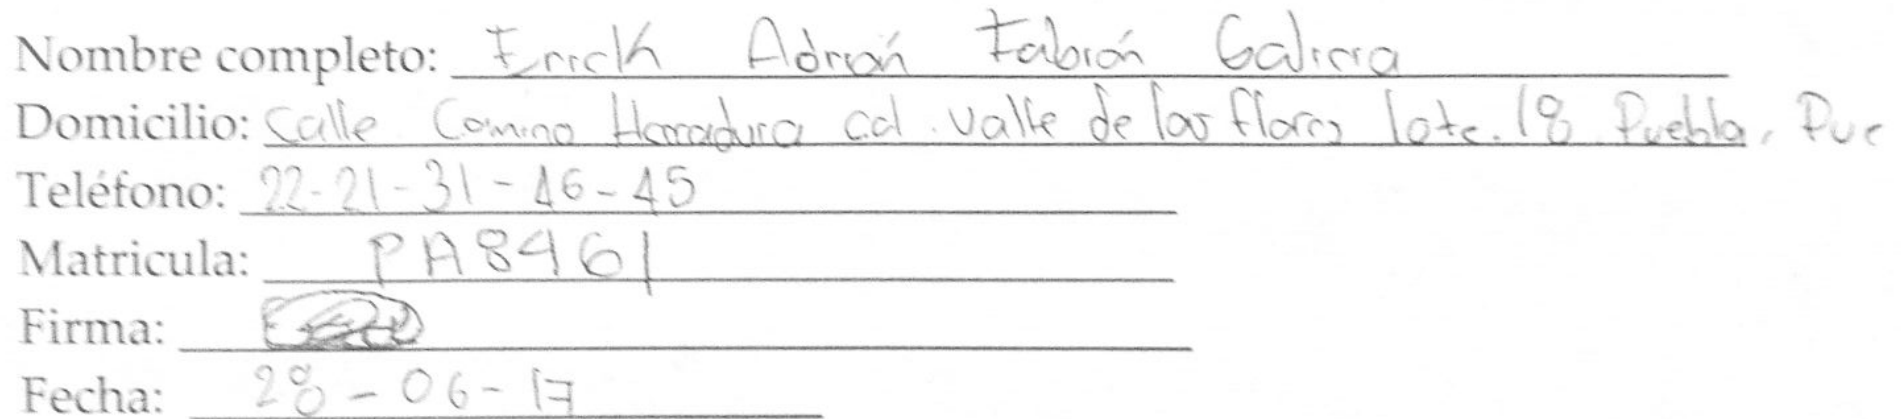 Nombre completo: Erick Adrián Fabián Galicia
Domicilio: Calle Camino Herradura col. Valle de las flores lote. 18 Puebla, Pue
Teléfono: 22-21-31-46-45
Matricula: PA8461
Firma:
Fecha: 28-06-17